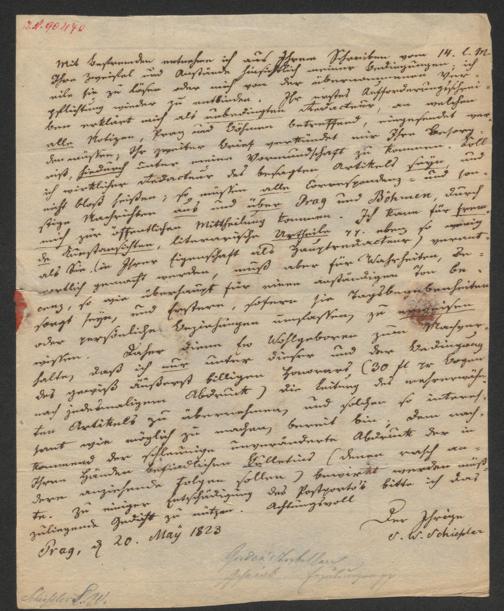 I.N. 90490
Mit Befremden entnehme ich aus Ihrem Schreiben vom 14. l. M.
Ihre Zweifel und Anstände hinsichtlich meiner Bedingungen; ich
eile sie zu lösen oder mich von der übernommenen Ver-
pflichtung wieder zu entbinden. Ihr erstes Aufforderungsschrei-
ben erklärt mich als unbedingten Redacteur, an welchen
alle Notizen, Prag und Böhmen betreffend, eingesendet wer-
den müssen; Ihr zweiter Brief verkündet mir Ihre Besorg-
niß, hiedurch unter meine Vormundschaft zu kommen. Soll
ich wirklicher Redacteur des besagten Artikels seyn und
nicht bloß heißen, so müssen alle Correspondenz- und son-
stige Nachrichten aus und über Prag und Böhmen, durch
mich zur öffentlichen Mittheilung kommen. Ich kann für frem-
de Kunstansichten, literarische Urtheile eben so wenig
als Sie (in Ihrer Eigenschaft als Hauptredacteur) verant-
wortlich gemacht werden, muß aber für Wahrheiten, De-
cenz, so wie überhaupt für einen anständigen Ton be-
sorgt seyn, und Erstere, sofern sie Tagsbegebenheiten
oder persönliche Beziehungen umfassen, zu
wissen. Daher diene Wohlgeboren zum
halte, daß ich nur unter dieser und der Bedingung
des gewiß äußerst billigen Honorars (30 fl pr Bogen
nach jedesmaligem Abdruck) die Leitung des mehrerwähn-
ten Artikels zu übernehmen, und solchen so interes-
sant wie möglich zu machen, bereit bin, dem nach-
kommend der schleunige unveränderte Abdruck der in
Ihren Händen befindlichen Bulletins (denen rasch an-
dere anziehende folgen sollen) bewirkt werden müß-
te. Zu einiger Entschädigung des Postporto's bitte ich das
zuliegende Gedicht zu nützen. Achtungsvoll
Der Ihrige
S. W. Schießler
Prag, d 20. May 1823
Schießler S. W.